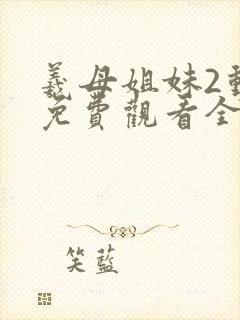 義母姐妹2動
免費觀看全
笑藍